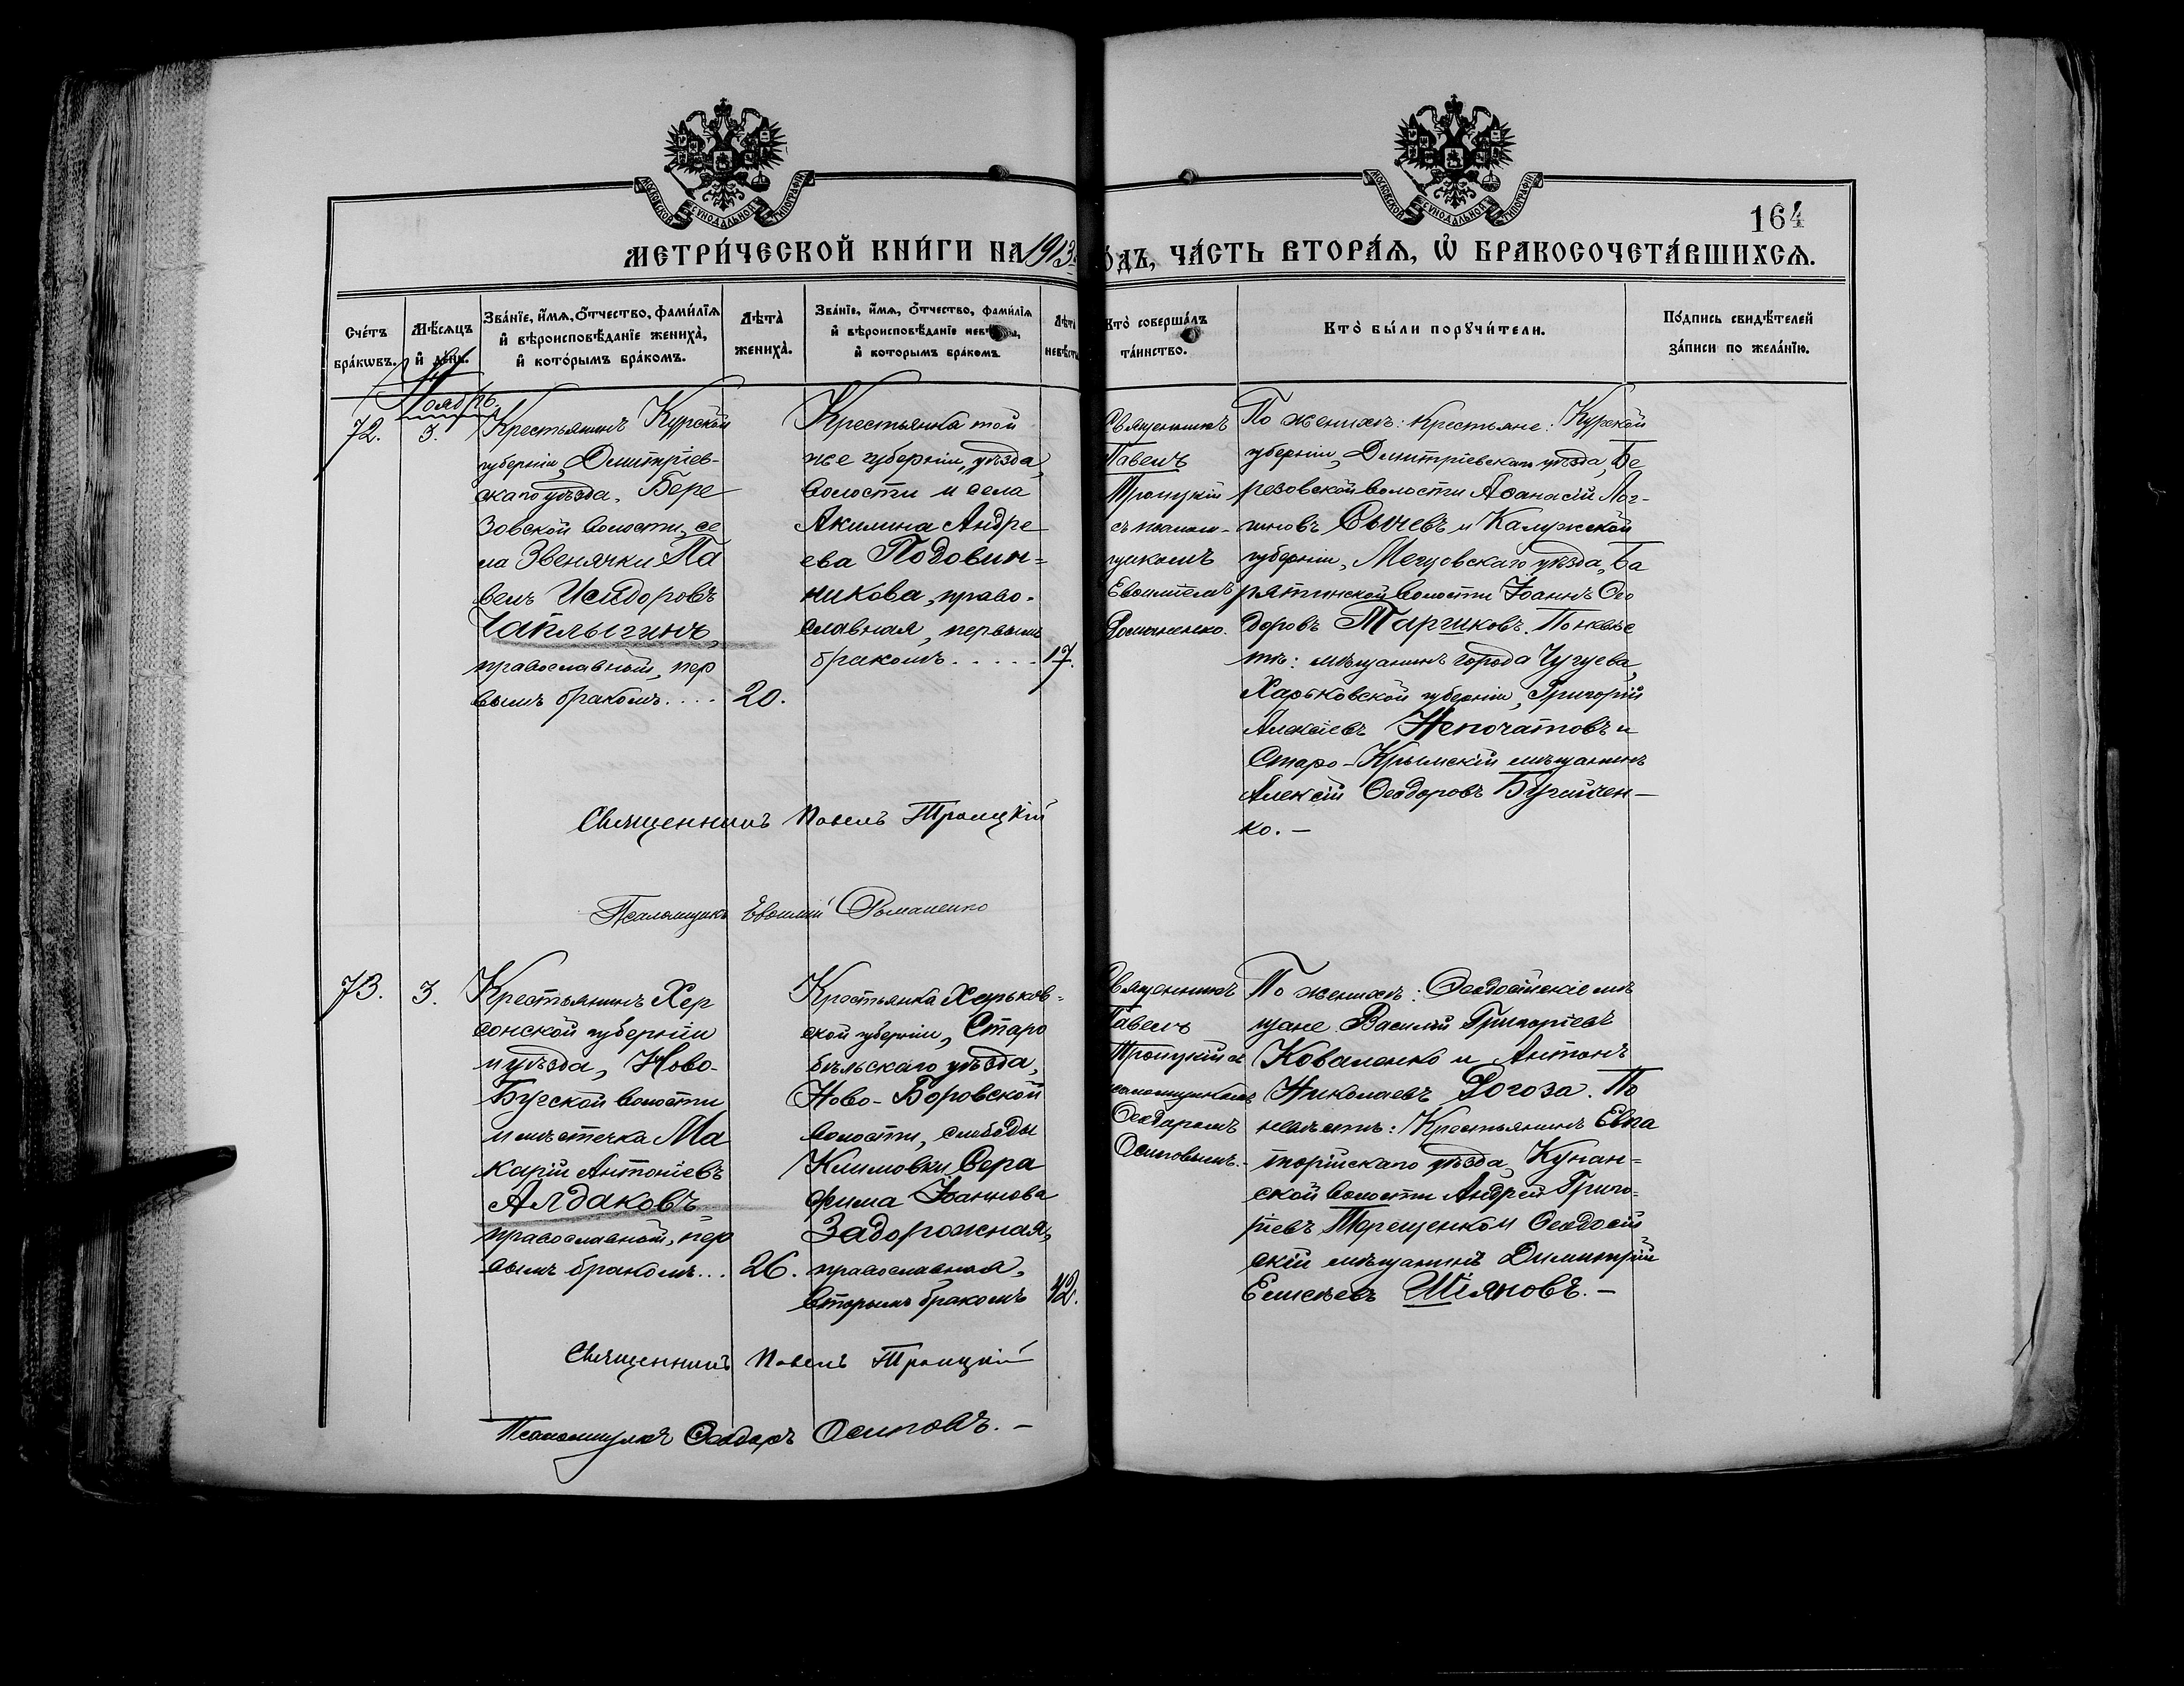 МОСКОВСКОЙ СѴНОДАЛЬНОЙ ТИПОГРАФІИ
МОСКОВСКОЙ СѴНОДАЛЬНОЙ ТИПОГРАФІИ
164
МЕТРИ́ЧЕСКОЙ КНИ́ГИ НА 1913
О́ДЪ, ЧА́СТЬ ВТОРА́Ѧ, Ѡ҆ БРАКОСОЧЕТА́ВШИХСѦ.
Сче́тъ
бра́кѡвъ.
Мѣ́сѧцъ
и҆ де́нь.
Зва́нїе, и҆́мѧ, о҆́тчество, фами́лїѧ
и҆ вѣроисповѣ́данїе жениха̀,
и҆ кото́рымъ бра́комъ.
Лѣта̀
жениха̀.
Зва́нїе, и҆́мѧ, о҆́тчество, фами́лїѧ
и҆ вѣроисповѣ́данїе невѣ́сты,
и҆ которымъ бра́комъ.
Лѣта̀
невѣ́сты
Кто̀ соверша́лъ
та́инство.
Кто̀ бы́ли порꙋчи́тели.
По́дпись свидѣ́телей
за́писи по жела́нїю.
Ноябрь
72.
3.
Крестьянинъ Курской
губерніи, Дмитріев-
скаго уѣзда, Бере
зовской волости, се
ла Звенячки Па
велъ Исидоровъ
Чаплыгинъ,
православный, пер
вымъ бракомъ....
20.
Крестьянка той
же губерніи, уѣзда,
волости и села
Акилина Андре
ева Подовин=
никова, право-
славная, первымъ
бракомъ.....
17.
Священникъ
Павелъ
Троицкій
съ псалом-
щикомъ
Евѳиміемъ
Романенко.
По женихѣ: крестьяне: Курской
губерніи, Димитріевскаго уѣзда, Бе
резовской волости Аѳанасій Лог-
иновъ Сычевъ и Калужской
губерніи, Мещовскаго уѣзда, Ба
рятинской волости Іоаннъ Ѳео
доровъ Таршиковъ. По невѣс
тѣ: мѣщанинъ города Чугуева,
Харьковской губерніи, Григорій
Алексіевъ Непочатовъ и
Старо-Крымскій мѣщанинъ
Алексій Ѳеодоровъ
ко.—
Священникъ Павелъ Троицкій
Псаломщикъ Евѳимій Романенко
73.
3.
Крестьянинъ Хер
сонской губерніи
и уѣзда, Ново-
Бугской волости
и мѣстечка Ма
карій Антоніевъ
Алдаковъ
православный, пер
вымъ бракомъ...
26.
Крестьянка Харьков-
ской губерніи, Старо
бѣльскаго уѣзда,
Ново-Боровской
волости, слободы
Климовки Сера
фима Іоаннова
Задорожная,
православная,
вторымъ бракомъ
42.
Священникъ
Павелъ
Троицкій съ
псаломщикомъ
Ѳеодоромъ
Осиповымъ.-
По женихѣ: Ѳеодосійскіе мѣ
щане Василій Григоріевъ
Коваленко и Антонъ
Николаевъ Рогоза. По
невѣстѣ: Крестьянинъ Евпа
торійскаго уѣзда, Кунан=
ской волости Андрей Григо-
ріевъ Терещенко и Ѳеодосій
скій мѣщанинъ Димитрій
Елисѣевъ Шіяновъ.—
Священникъ Павелъ Троицкій
Псаломщикъ Ѳеодоръ Осиповъ.—